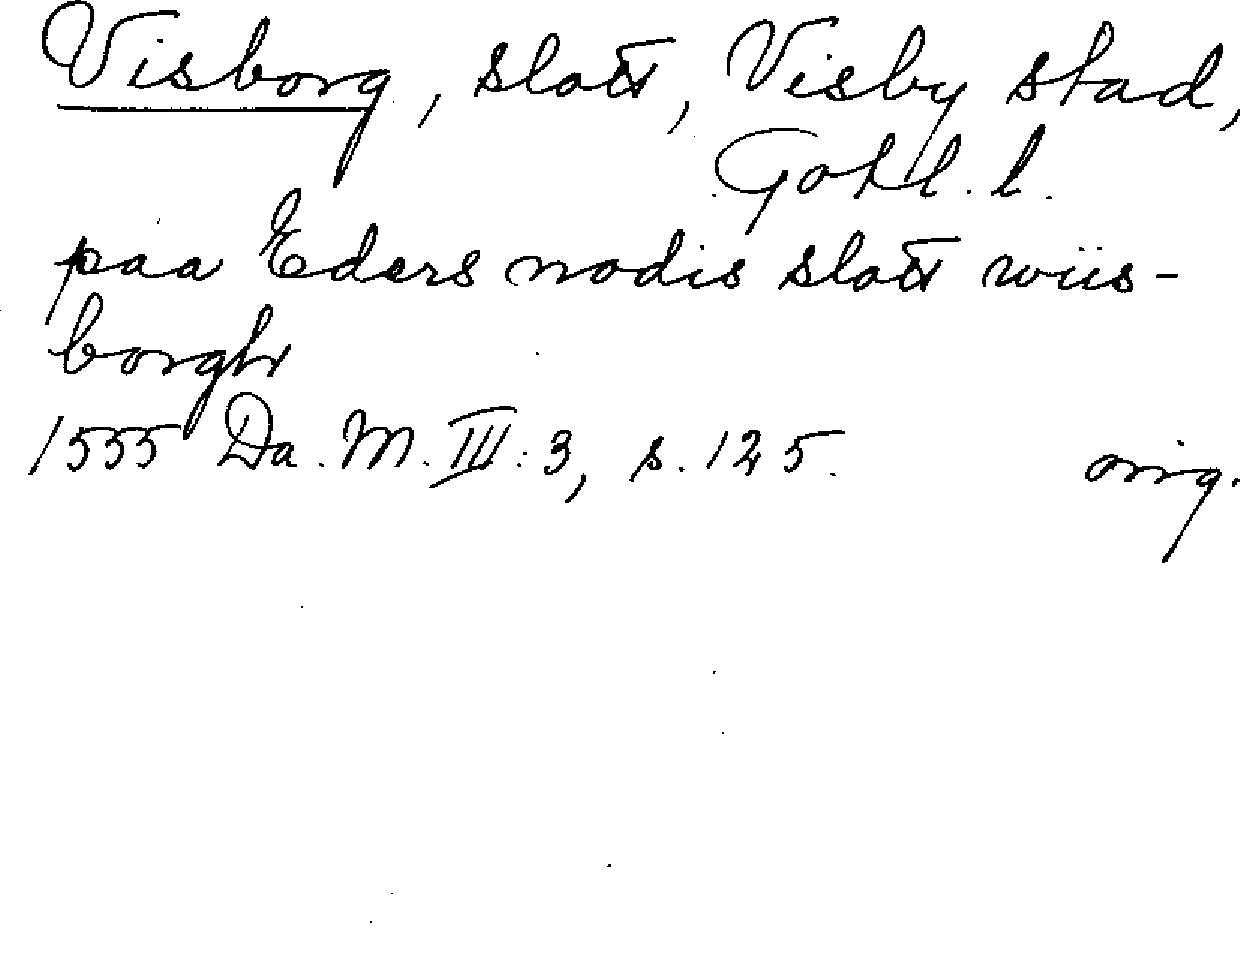 Visborg, slott, Visby stad,
Gotl. l.
paa Eders nodis slott wiis-
borgh
1555 Da. M. III: 3, s. 125.
orig.